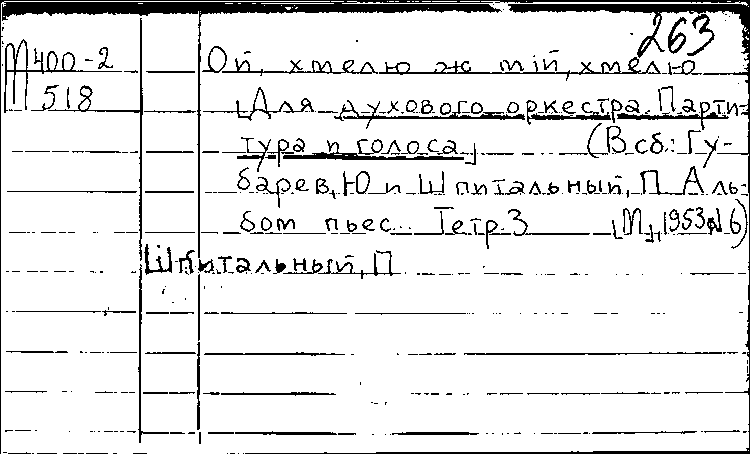 263
М400-2
518
Ой, хмелю ж мій, хмелю
[Для духового оркестра. Парти-
тура и голоса]     (В сб.: Гу-
барев, Ю и Шпитальный, П. Аль-
бом пьес.. Тетр. 3     [М], 1953 № 6)
Шпитальный, П